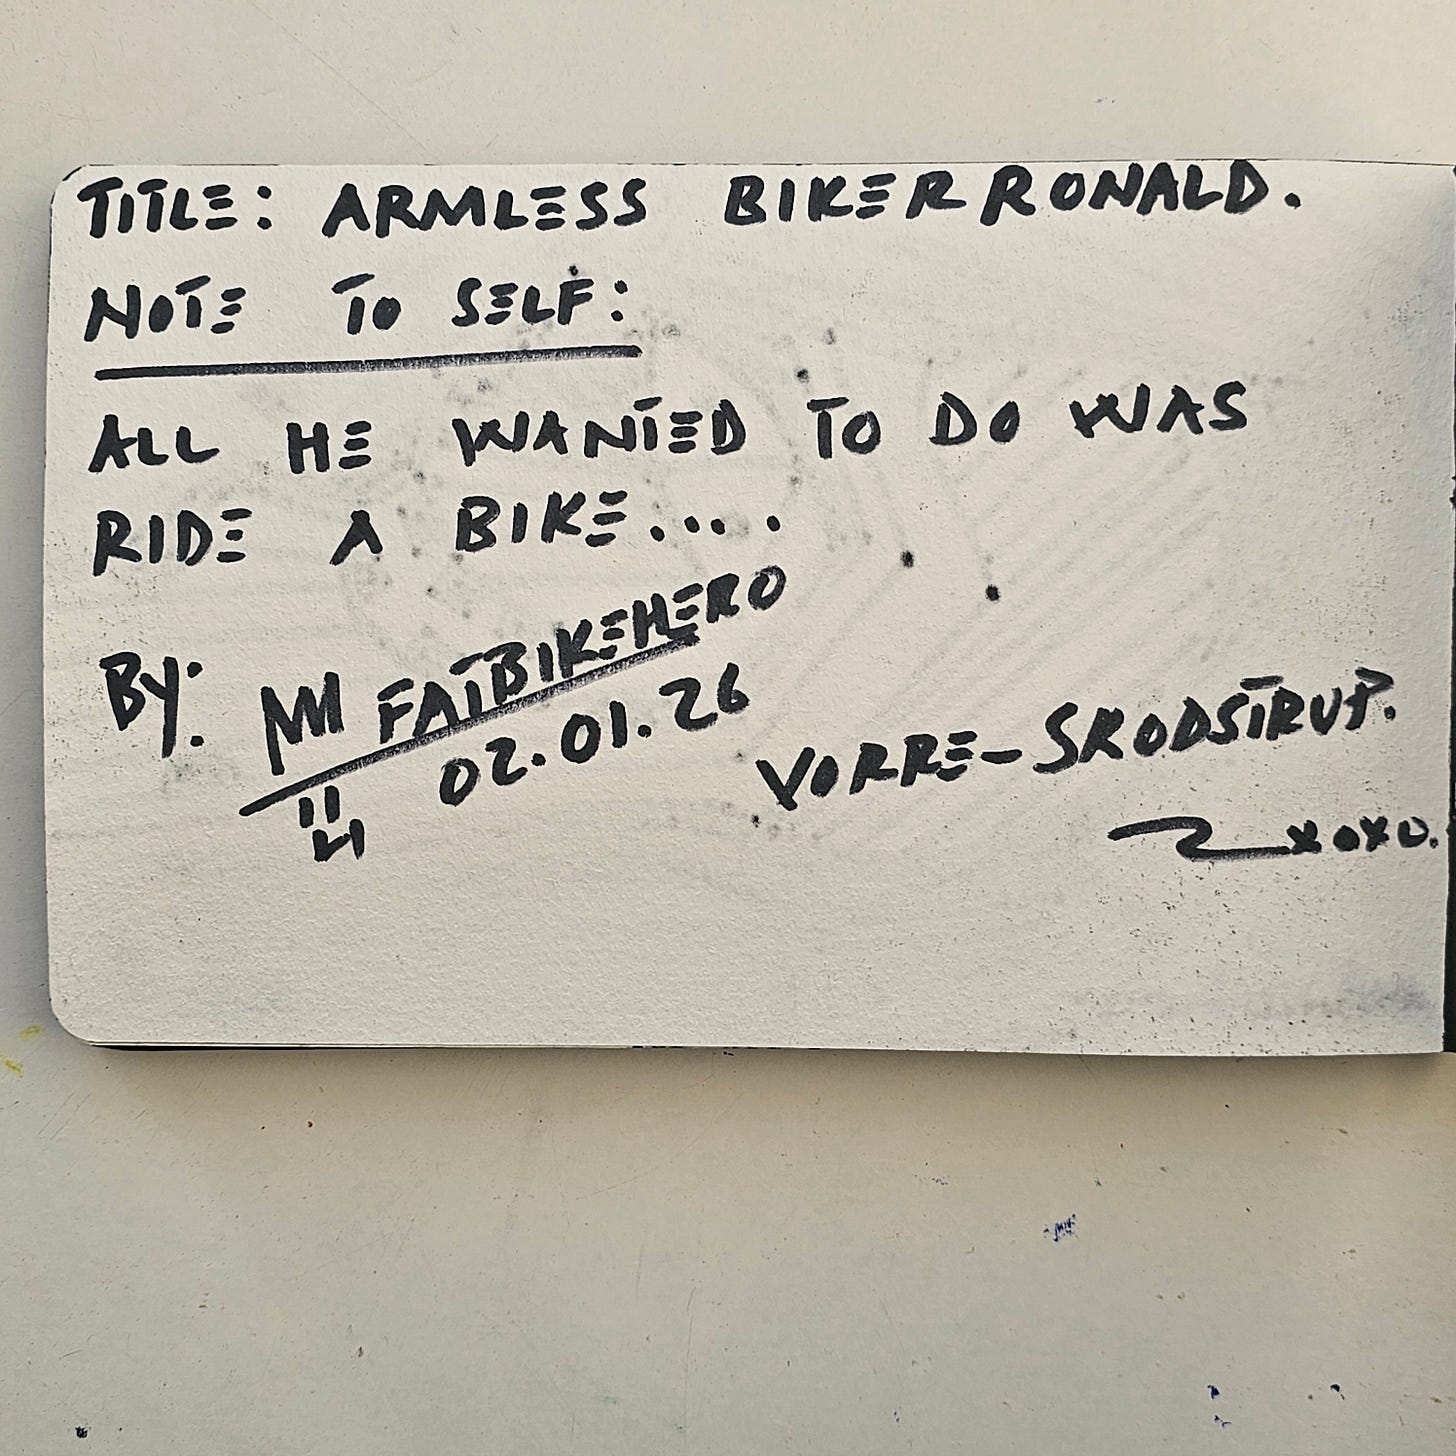 TITLE: ARMLESS BIKER RONALD.
NOTE TO SELF:
ALL HE WANTED TO DO WAS
RIDE A BIKE....
By: FATBIKEHERO
02.01.26
VORRE-SKODSTRUP.
XOXO.